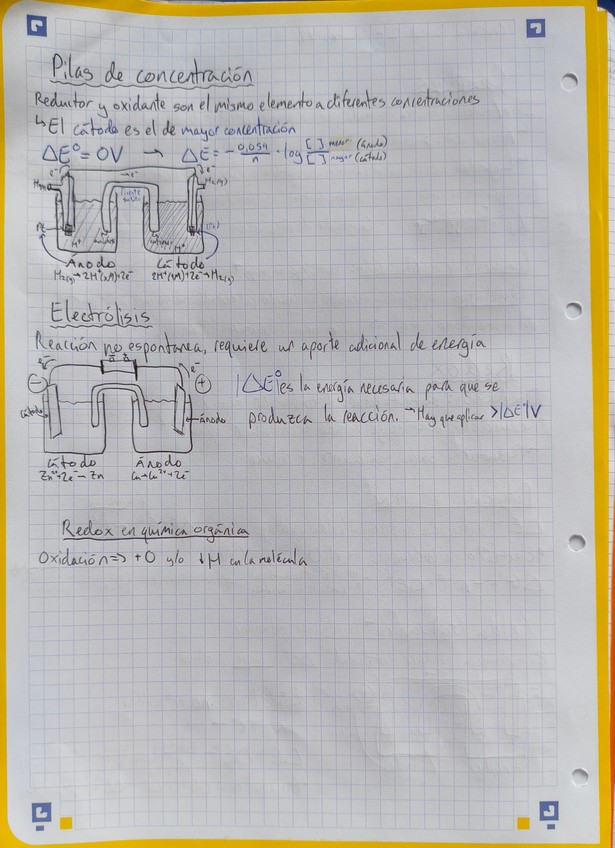 Pilas de concentración
Reductor y oxidante son el mismo elemento a diferentes concentraciones
↳ El cátodo es el de mayor concentración
ΔE° = 0V → ΔE = - 0,059/n · log [ ] menor (ánodo) / [ ] mayor (cátodo)
e⁻ → e⁻ e⁻
H₂(g) H₂(g)
Pt (Pt)
H⁺ H⁺
Ánodo Cátodo
H₂(g) → 2H⁺(xM)+2e⁻ 2H⁺(yM)+2e⁻ → H₂(g)
Electrólisis
Reacción no espontanea, requiere un aporte adicional de energía
e⁻ e⁻
⊖ ⊕ |ΔE°| es la energía necesaria para que se
cátodo ánodo produzca la reacción. → Hay que aplicar >|ΔE°|V
Cátodo Ánodo
Zn²⁺+2e⁻→Zn Cu→Cu²⁺+2e⁻
Redox en química orgánica
Oxidación => +O y/o ↓H en la molécula